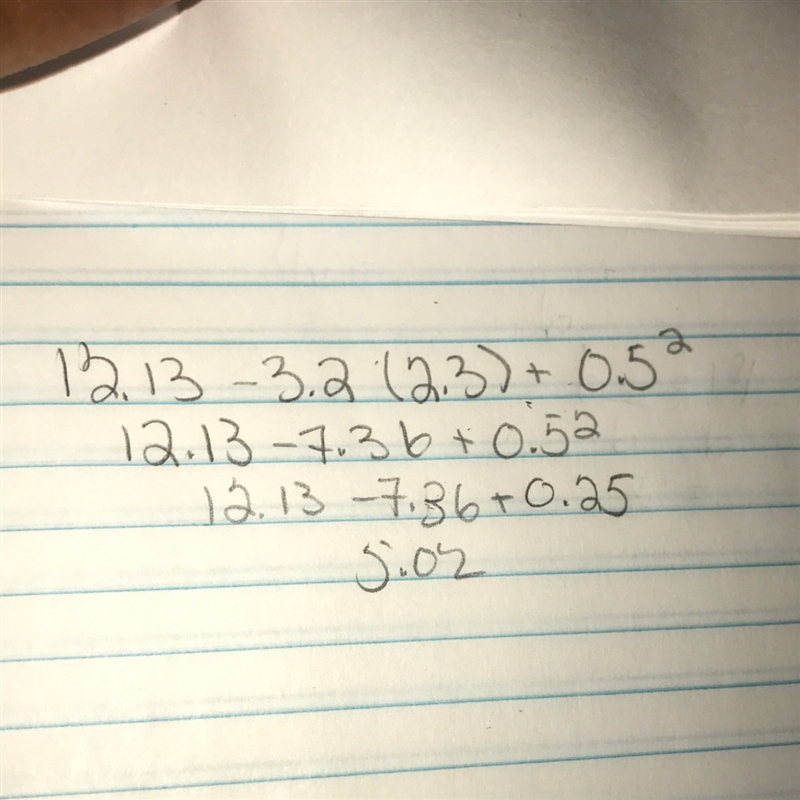 12.13 - 3.2 (2.3) + 0.5²
12.13 - 7.36 + 0.5²
12.13 - 7.36 + 0.25
5.02